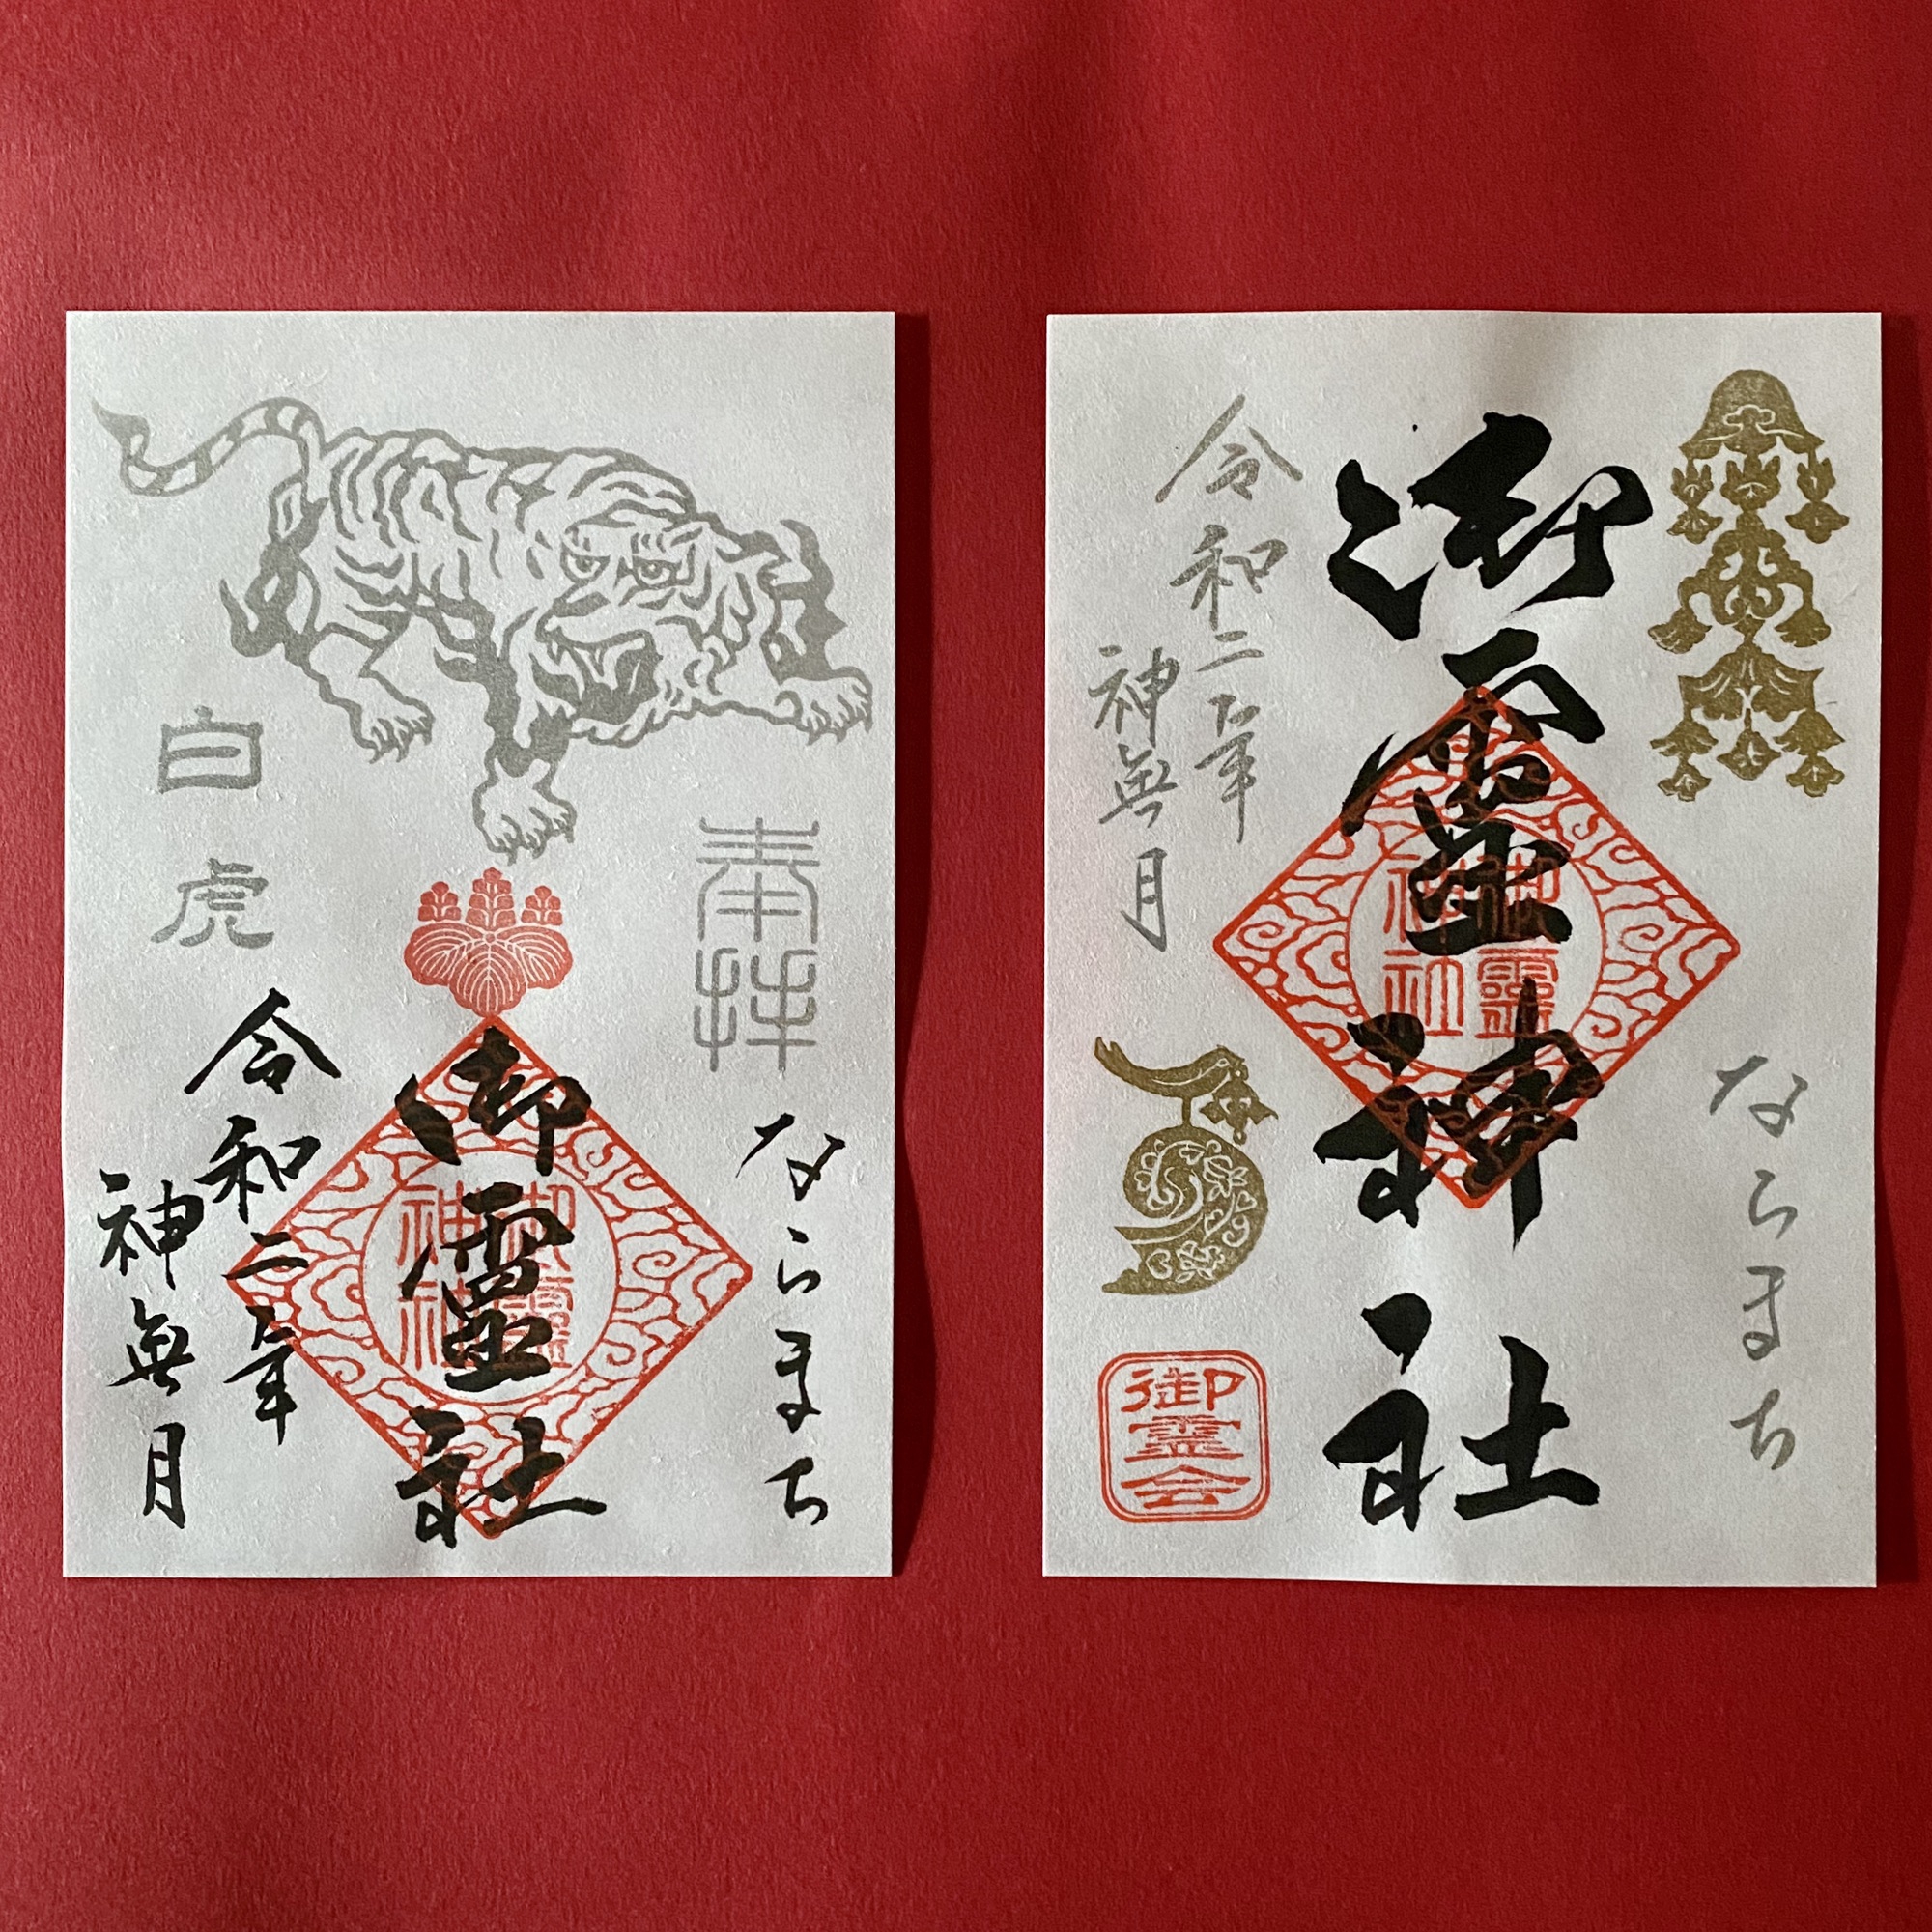 奉拝
ならまち
御霊社
御霊
神社
白虎
令和二年
神無月
ならまち
御霊神社
御霊
神社
令和二年
神無月
御霊会